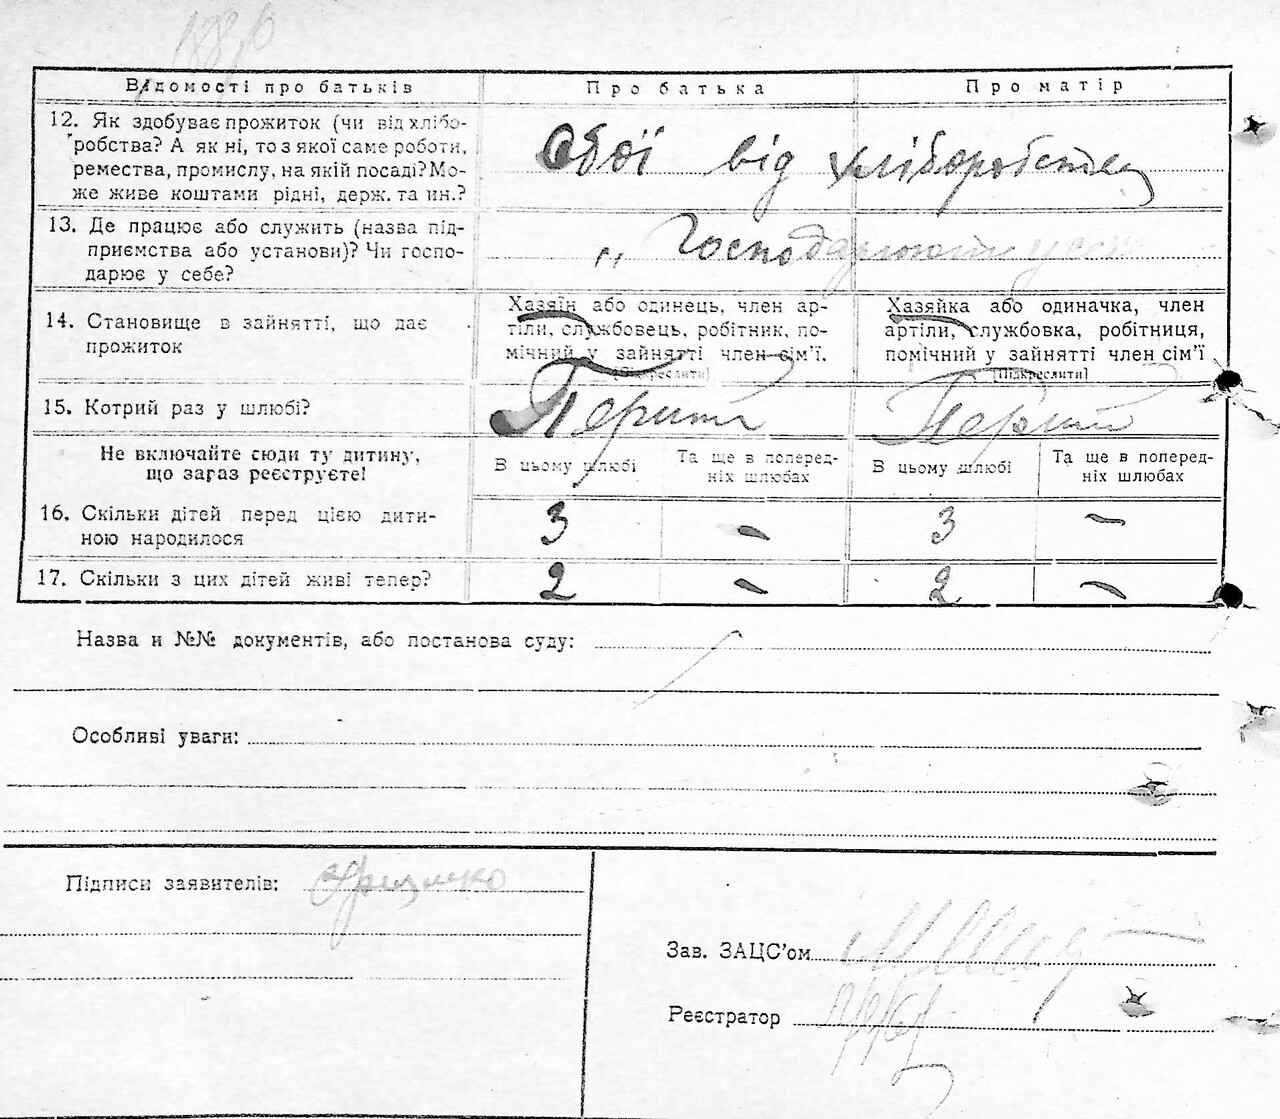 Відомості про батьків
Про батька
Про матір
12. Як здобуває прожиток (чи від хлібо-
робства? А як ні, то з якої саме роботи,
ремества, промислу, на якій посаді? Мо-
же живе коштами рідні, держ. та ин.?
Обої від хліборобства
13. Де працює або служить (назва під-
приємства або установи)? Чи госпо-
дарює у себе?
„ Господарюють у себе
14. Становище в зайнятті, що дає
прожиток
Хазяїн або одинець, член ар-
тіли, службовець, робітник, по-
мічний у зайнятті член сім’ї.
[Підкреслити]
Хазяйка або одиначка, член
артіли, службовка, робітниця,
помічний у зайнятті член сім’ї
[Підкреслити]
15. Котрий раз у шлюбі?
Перший
Перший
Не включайте сюди ту дитину,
що зараз реєструєте!
В цьому шлюбі
Та ще в поперед-
ніх шлюбах
В цьому шлюбі
Та ще в поперед-
ніх шлюбах
16. Скільки дітей перед цією дити-
ною народилося
3 - 3 -
17. Скільки з цих дітей живі тепер?
2 - 2 -
Назва и №№ документів, або постанова суду:
Особливі уваги:
Підписи заявителів:
Зав. ЗАЦС’ом
Реєстратор